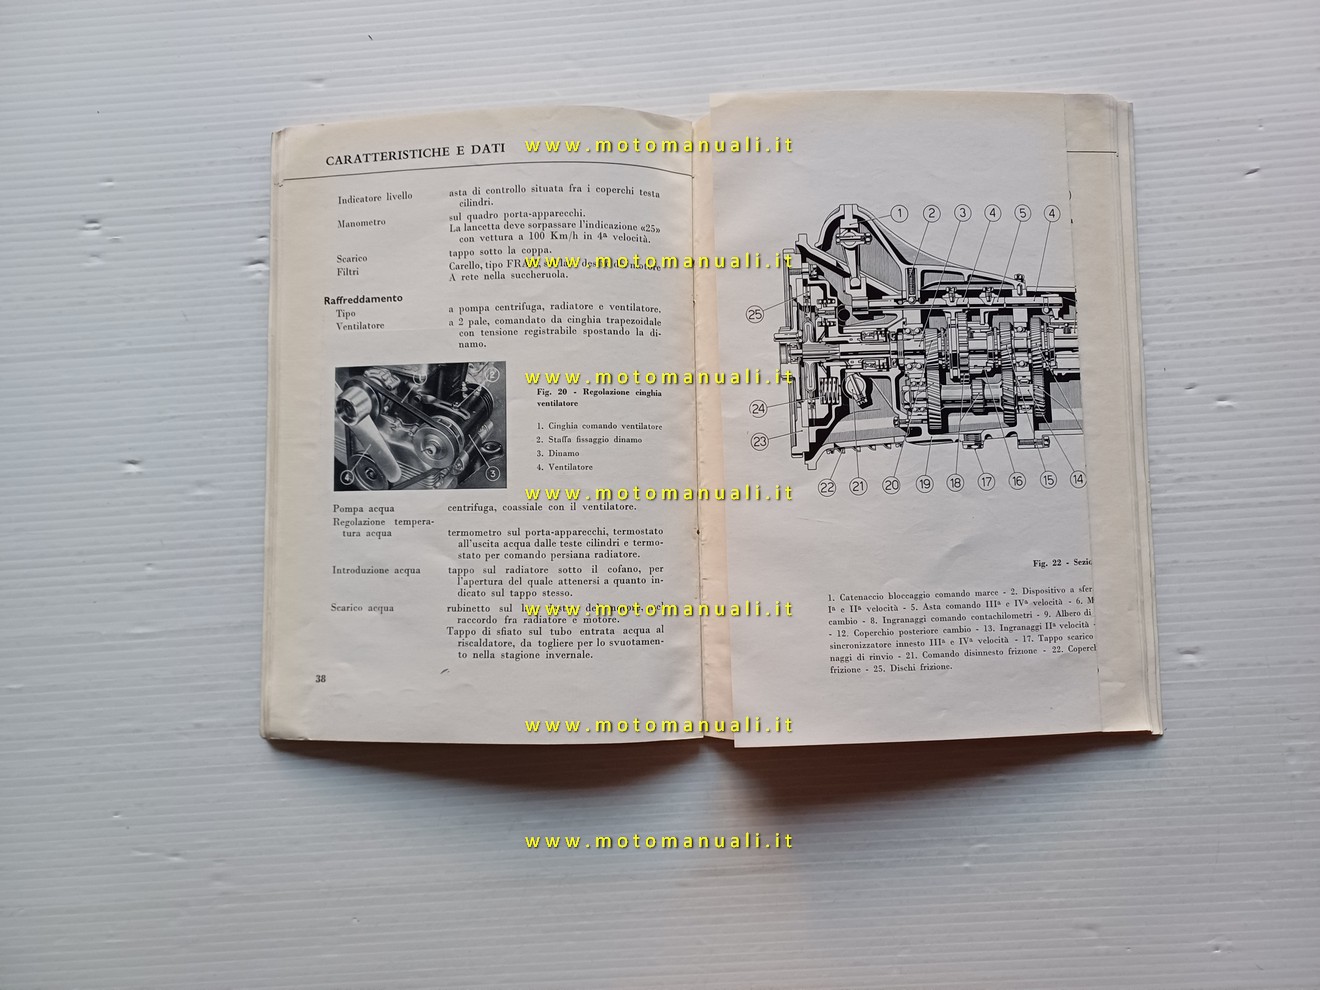 CARATTERISTICHE E DATI
Indicatore livello asta di controllo situata fra i coperchi testa
cilindri.
Manometro sul quadro porta-apparecchi.
La lancetta deve sorpassare l'indicazione «25»
con vettura a 100 Km/h in 4ª velocità.
Scarico tappo sotto la coppa.
Filtri Carello, tipo
A rete nella succheruola.
Raffreddamento
Tipo a pompa centrifuga, radiatore e ventilatore.
Ventilatore a 2 pale, comandato da cinghia trapezoidale
con tensione registrabile spostando la di-
namo.
1
2
3
4
Fig. 20 - Regolazione cinghia
ventilatore
1. Cinghia comando ventilatore
2. Staffa fissaggio dinamo
3. Dinamo
4. Ventilatore
Pompa acqua centrifuga, coassiale con il ventilatore.
Regolazione tempera-
tura acqua termometro sul porta-apparecchi, termostato
all'uscita acqua dalle teste cilindri e termo-
stato per comando persiana radiatore.
Introduzione acqua tappo sul radiatore sotto il cofano, per
l'apertura del quale attenersi a quanto in-
dicato sul tappo stesso.
Scarico acqua rubinetto sul
raccordo fra radiatore e motore.
Tappo di sfiato sul tubo entrata acqua al
riscaldatore, da togliere per lo svuotamen-
to nella stagione invernale.
38
1 2 3 4 5 4
25
24
23
22 21 20 19 18 17 16 15 14
Fig. 22 - Sezio
1. Catenaccio bloccaggio comando marce - 2. Dispositivo a sfer
Iª e IIª velocità - 5. Asta comando IIIª e IVª velocità - 6. M
cambio - 8. Ingranaggi comando contachilometri - 9. Albero di
- 12. Coperchio posteriore cambio - 13. Ingranaggi IIª velocità -
sincronizzatore innesto IIIª e IVª velocità - 17. Tappo scarico
naggi di rinvio - 21. Comando disinnesto frizione - 22. Coperch
frizione - 25. Dischi frizione.
www.motomanuali.it
www.motomanuali.it
www.motomanuali.it
www.motomanuali.it
www.motomanuali.it
www.motomanuali.it
www.motomanuali.it